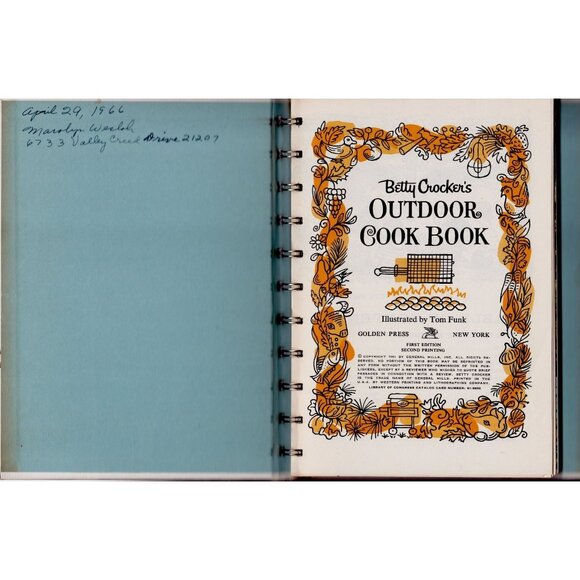 April 29, 1966
Marolyn
6733 Valley Creed Drive 21207
Betty Crocker's
OUTDOOR
COOK BOOK
Illustrated by Tom Funk
GOLDEN PRESS NEW YORK
FIRST EDITION
SECOND PRINTING
© COPYRIGHT 1961 BY GENERAL MILLS, INC. ALL RIGHTS RE-
SERVED. NO PORTION OF THIS BOOK MAY BE REPRINTED IN
ANY FORM WITHOUT THE WRITTEN PERMISSION OF THE PUB-
LISHERS, EXCEPT BY A REVIEWER WHO WISHES TO QUOTE BRIEF
PASSAGES IN CONNECTION WITH A REVIEW. BETTY CROCKER
IS THE TRADE NAME OF GENERAL MILLS. PRINTED IN THE
U.S.A. BY WESTERN PRINTING AND LITHOGRAPHING COMPANY.
LIBRARY OF CONGRESS CATALOG CARD NUMBER: